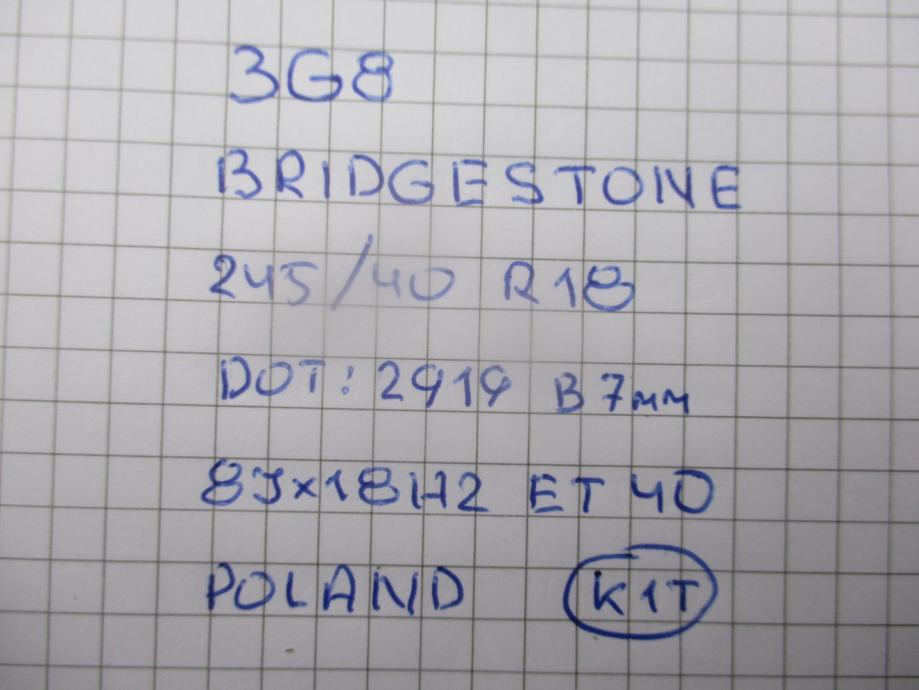 3G8
BRIDGESTONE
245/40 R18
DOT: 2919 B 7мм
8Jx18H2 ET 40
POLAND K1T